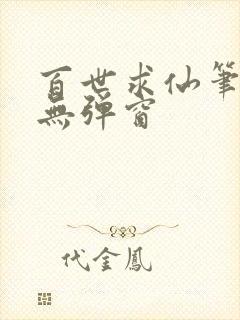 百世求仙筆
無彈窗
代金鳳